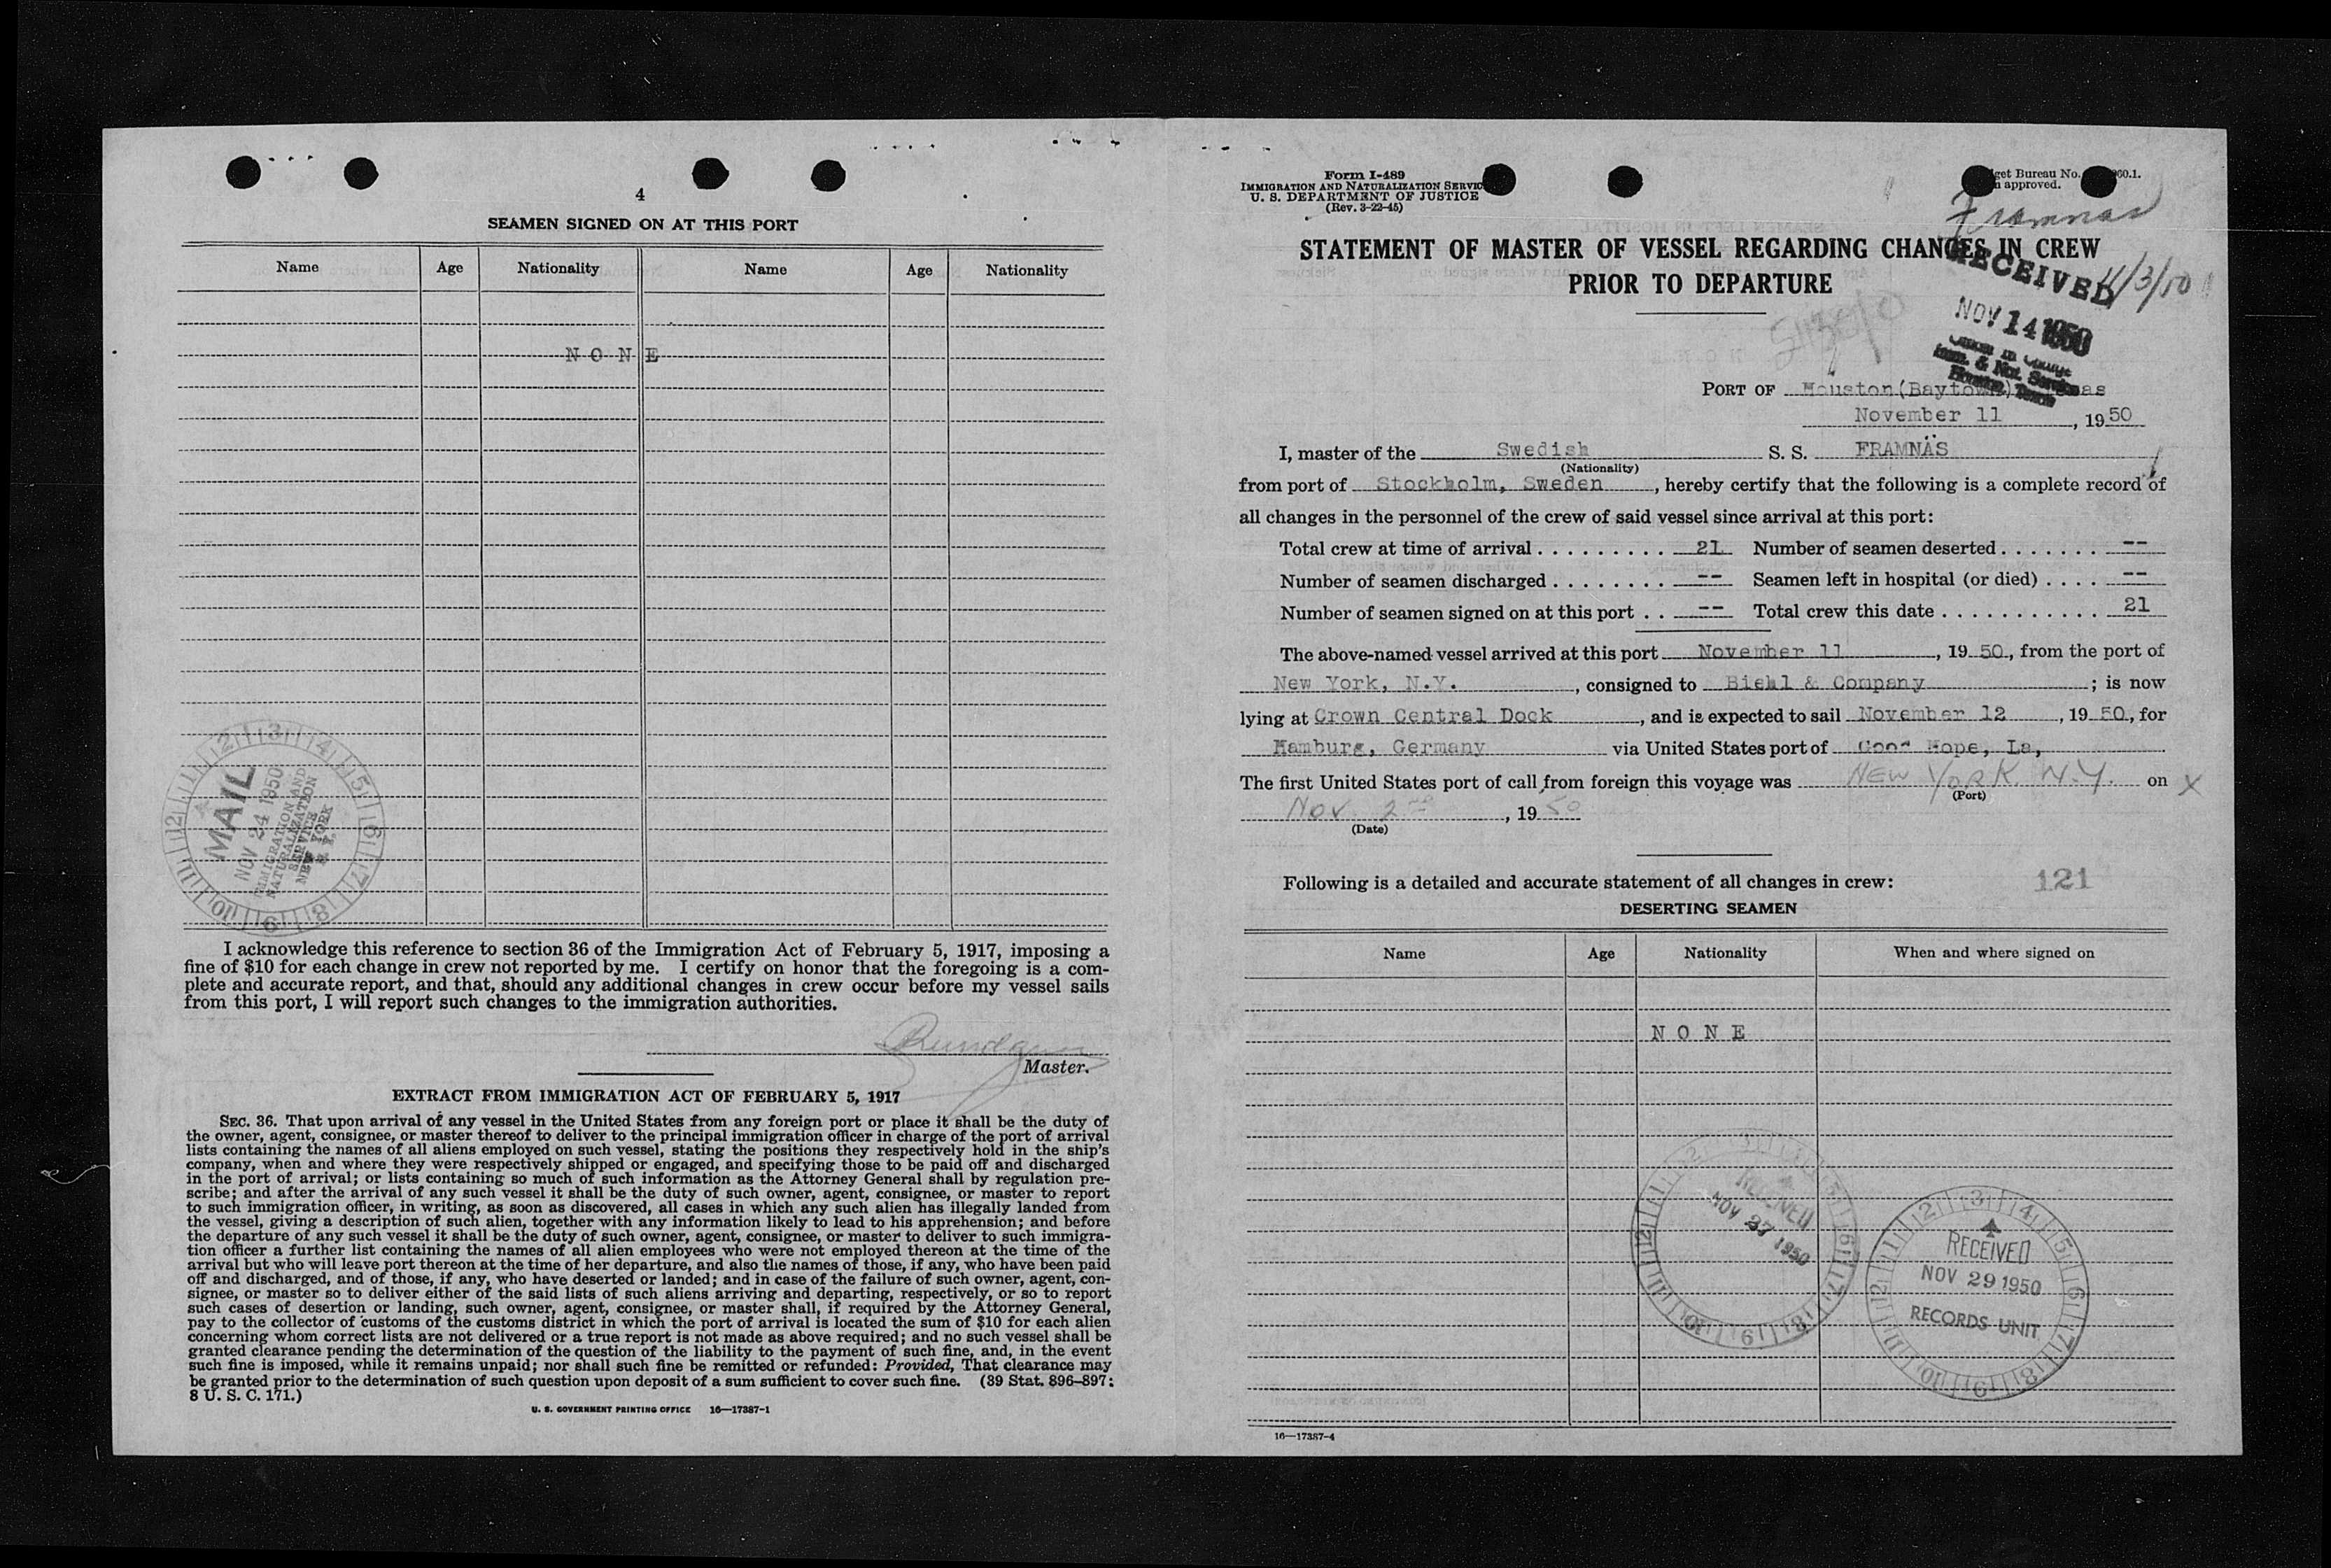 4
SEAMEN SIGNED ON AT THIS PORT
Name Age Nationality Name Age Nationality
N O N E
MAIL
NOV 24 1950
IMMIGRATION AND
NATURALIZATION
SERVICE
NEW YORK
N. Y.
I acknowledge this reference to section 36 of the Immigration Act of February 5, 1917, imposing a
fine of $10 for each change in crew not reported by me. I certify on honor that the foregoing is a com-
plete and accurate report, and that, should any additional changes in crew occur before my vessel sails
from this port, I will report such changes to the immigration authorities.
Master.
EXTRACT FROM IMMIGRATION ACT OF FEBRUARY 5, 1917
SEC. 36. That upon arrival of any vessel in the United States from any foreign port or place it shall be the duty of
the owner, agent, consignee, or master thereof to deliver to the principal immigration officer in charge of the port of arrival
lists containing the names of all aliens employed on such vessel, stating the positions they respectively hold in the ship's
company, when and where they were respectively shipped or engaged, and specifying those to be paid off and discharged
in the port of arrival; or lists containing so much of such information as the Attorney General shall by regulation pre-
scribe; and after the arrival of any such vessel it shall be the duty of such owner, agent, consignee, or master to report
to such immigration officer, in writing, as soon as discovered, all cases in which any such alien has illegally landed from
the vessel, giving a description of such alien, together with any information likely to lead to his apprehension; and before
the departure of any such vessel it shall be the duty of such owner, agent, consignee, or master to deliver to such immigra-
tion officer a further list containing the names of all alien employees who were not employed thereon at the time of the
arrival but who will leave port thereon at the time of her departure, and also the names of those, if any, who have been paid
off and discharged, and of those, if any, who have deserted or landed; and in case of the failure of such owner, agent, con-
signee, or master so to deliver either of the said lists of such aliens arriving and departing, respectively, or so to report
such cases of desertion or landing, such owner, agent, consignee, or master shall, if required by the Attorney General,
pay to the collector of customs of the customs district in which the port of arrival is located the sum of $10 for each alien
concerning whom correct lists are not delivered or a true report is not made as above required; and no such vessel shall be
granted clearance pending the determination of the question of the liability to the payment of such fine, and, in the event
such fine is imposed, while it remains unpaid; nor shall such fine be remitted or refunded: Provided, That clearance may
be granted prior to the determination of such question upon deposit of a sum sufficient to cover such fine. (39 Stat. 896–897;
8 U. S. C. 171.)
U. S. GOVERNMENT PRINTING OFFICE 16—17387-1
Form I-489
IMMIGRATION AND NATURALIZATION SERVIC
U. S. DEPARTMENT OF JUSTICE
(Rev. 3-22-45)
get Bureau No. 60.1.
approved.
Framnas
11/3/50
STATEMENT OF MASTER OF VESSEL REGARDING CHANGES IN CREW
PRIOR TO DEPARTURE
RECEIVED
NOV 14 1950
Officer in Charge
Imm. & Nat. Service
Houston, Texas
PORT OF Houston(Baytown)
November 11, 1950
I, master of the Swedish S. S. FRAMNÄS
(Nationality)
from port of Stockholm, Sweden, hereby certify that the following is a complete record of
all changes in the personnel of the crew of said vessel since arrival at this port:
Total crew at time of arrival . . . . . . . . . 21 Number of seamen deserted . . . . . . . --
Number of seamen discharged . . . . . . . . -- Seamen left in hospital (or died) . . . . --
Number of seamen signed on at this port . . -- Total crew this date . . . . . . . . . . . . 21
The above-named vessel arrived at this port November 11, 1950, from the port of
New York, N.Y., consigned to Biehl & Company; is now
lying at Crown Central Dock, and is expected to sail November 12, 1950, for
Hamburg, Germany via United States port of Good Hope, La,
The first United States port of call from foreign this voyage was NEW YORK N.Y. on X
(Port)
Nov. 2nd, 1950
(Date)
Following is a detailed and accurate statement of all changes in crew: 121
DESERTING SEAMEN
Name Age Nationality When and where signed on
N O N E
RECEIVED
NOV 27 1950
RECEIVED
NOV 29 1950
RECORDS UNIT
16—17387-4